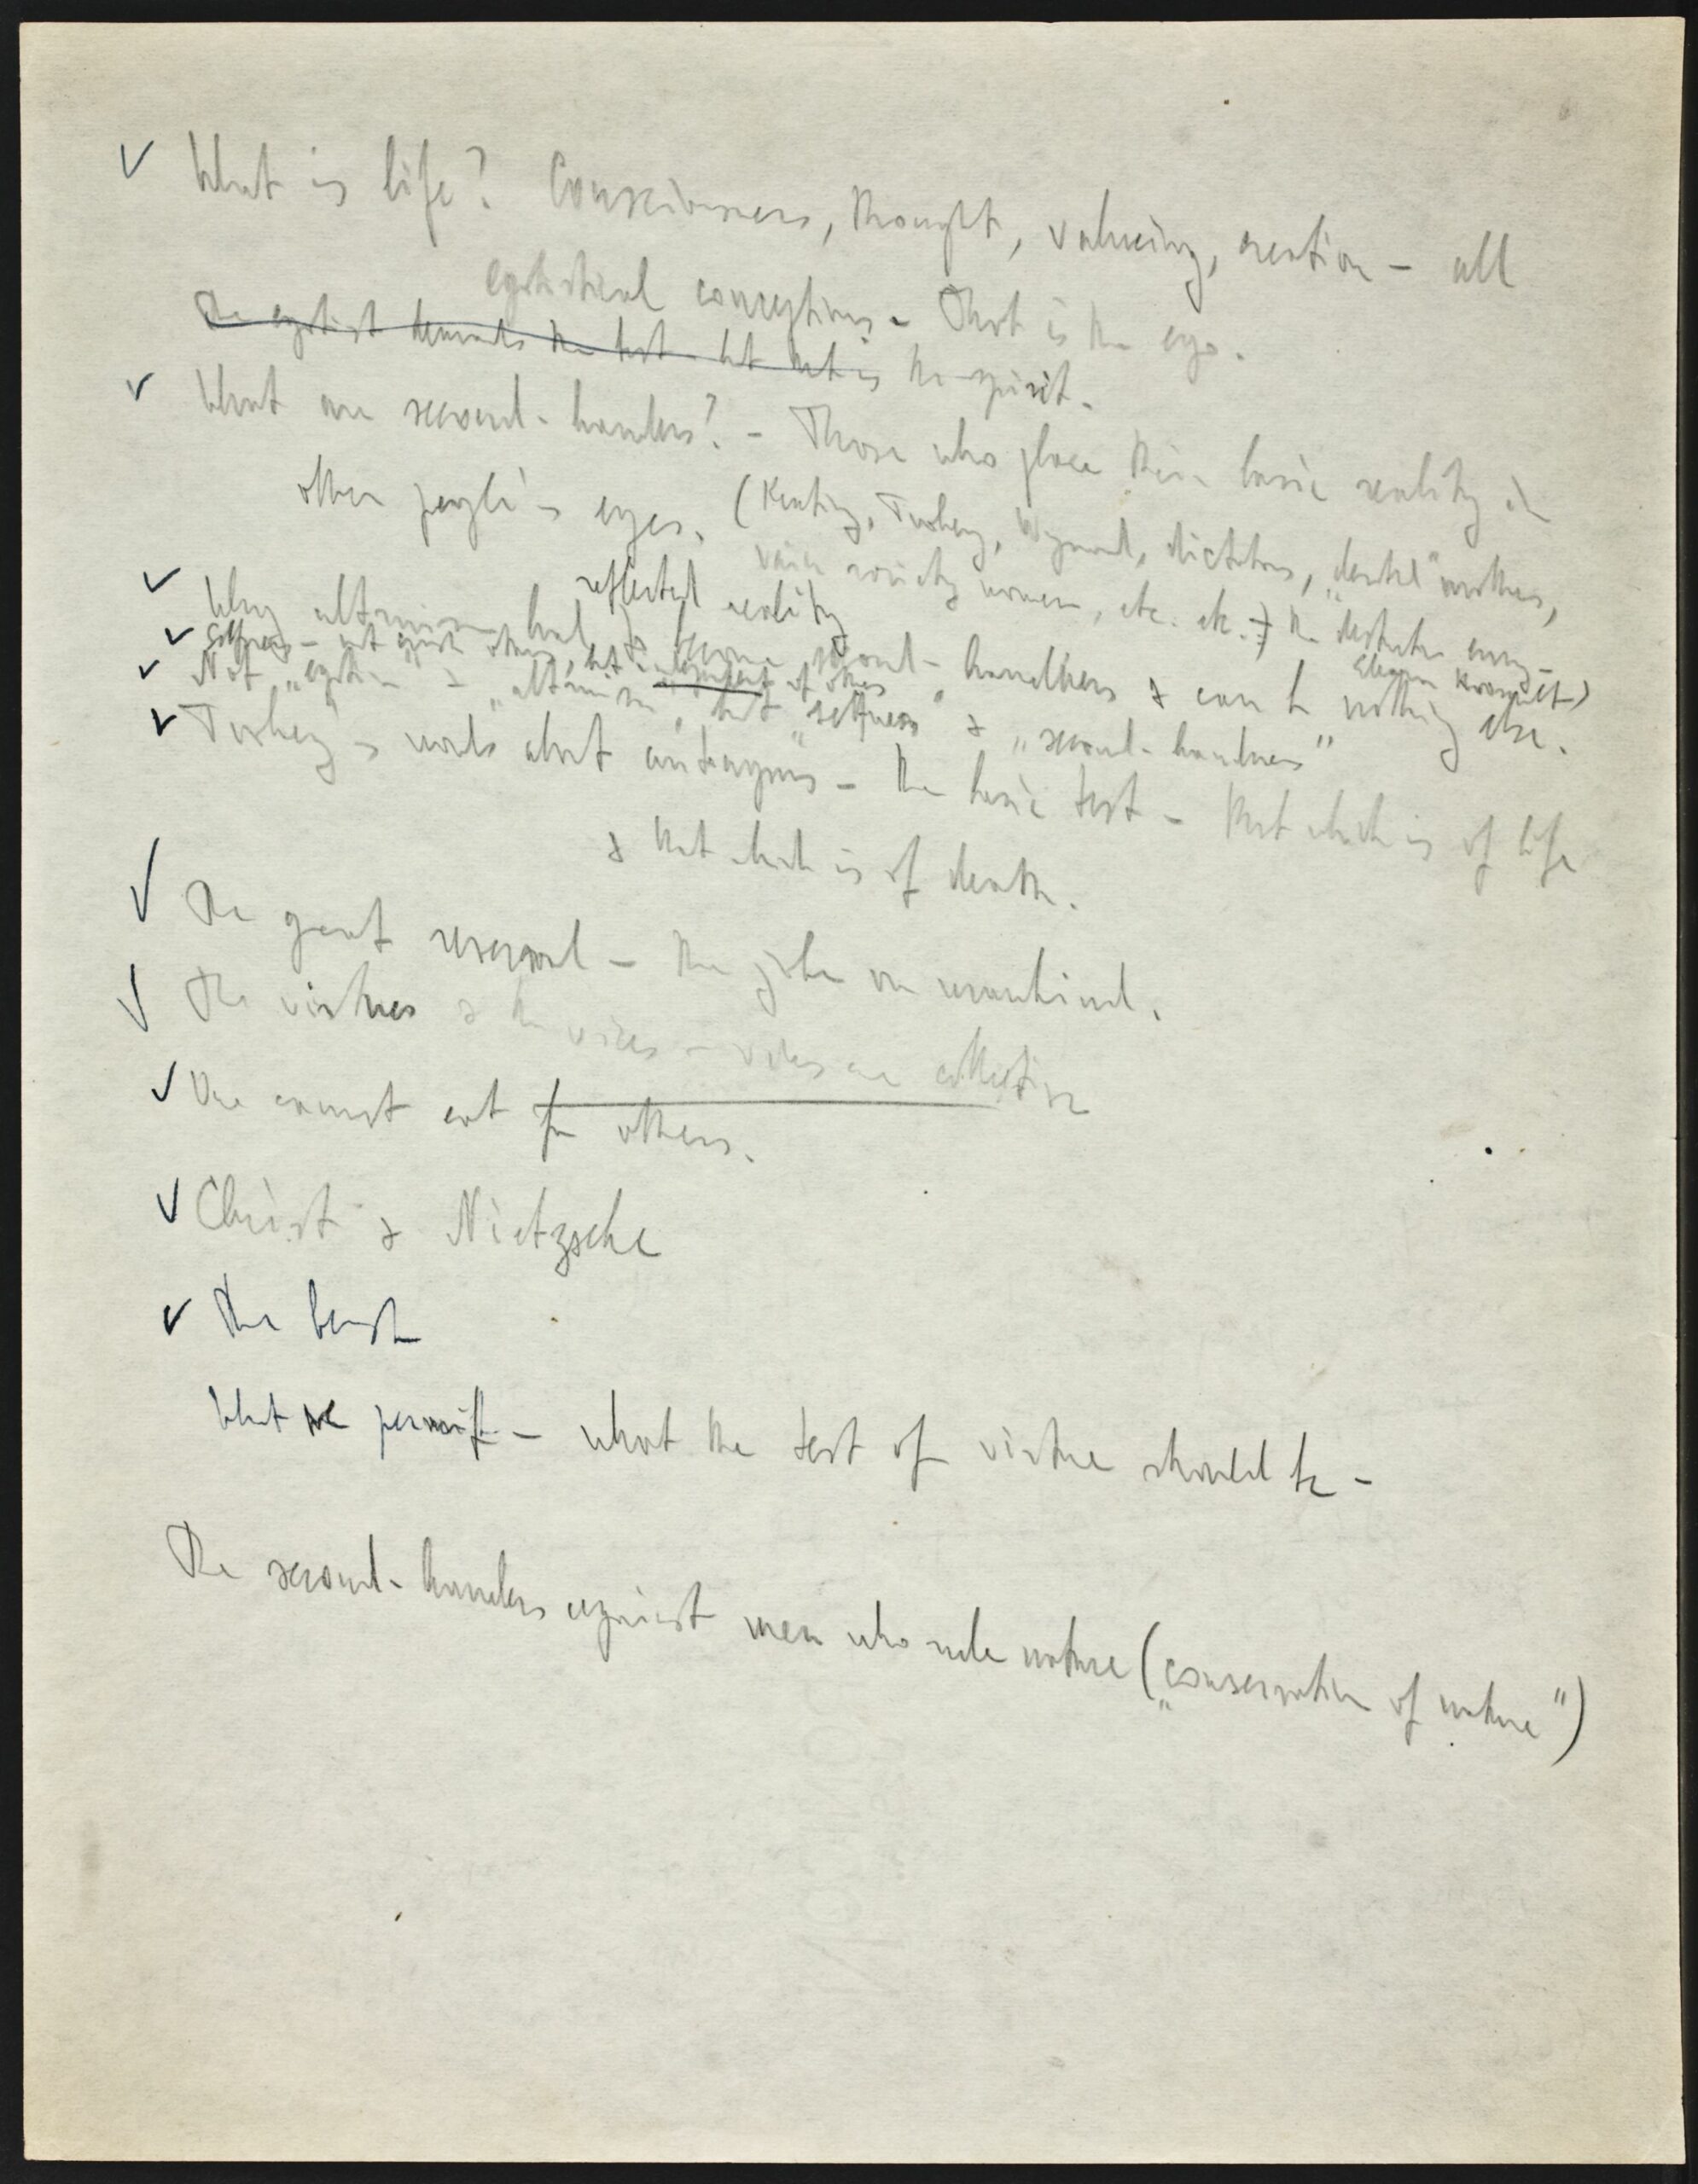 ✓ What is life? Consciousness, thought, valueing, creation – all
egotistical conceptions – That is the ego.
The egotist demands the best – but that is the spirit.
✓ What are second-handers? – Those who place their basic reality in
other people's eyes. (Keating, Toohey, Wynand, dictators, mothers,
vain society women, etc. etc.
reflected reality
✓ Why altruism had to become second-handness & can be nothing else.
✓ Selfness – not against others, but independent of others
✓ Not „egotism" & „altruism", but „selfness" & „second-handness"
✓ Toohey's words about – the basic test – that which is of life
& that which is of death.
✓ The great reversal – the joke on mankind.
✓ The virtues & the vices – vices are collective
✓ One cannot eat for others.
✓ Christ & Nietzsche
✓ The
What we permit – what the test of virtue should be –
The second-handers against men who rule nature („conservation of nature")